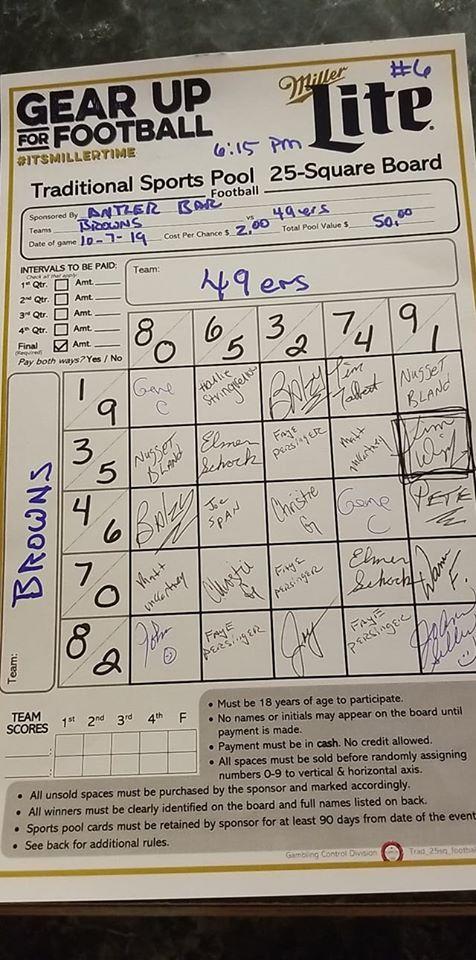 #6
GEAR UP
FOR FOOTBALL
#ITSMILLERTIME
Miller
Lite
6:15 PM
Traditional Sports Pool 25-Square Board
Football
Sponsored By ANTLER BAR
Teams BROWNS vs 49ers
Date of game 10-7-19 Cost Per Chance $ 2.00 Total Pool Value $ 50.00
INTERVALS TO BE PAID:
Check all that apply
1st Qtr. Amt.
2nd Qtr. Amt.
3rd Qtr. Amt.
4th Qtr. Amt.
Final Amt.
(Required)
Pay both ways? Yes / No
Team:
49ers
8/0 6/5 3/2 7/4 9/1
Team: BROWNS
1/9 Gene C Harlie BAIZY Jim Talbert NUGGET BLAND
3/5 NUGGET BLAND Elmer Schock FAYE PERSINGER Matt McCartney Jim
4/6 BAIZY JOE SPAN Christie G Gene C PETE
7/0 Matt McCartney Christie G FAYE PERSINGER Elmer Schock F.
8/2 John FAYE PERSINGER Joy FAYE PERSINGER John
TEAM SCORES 1st 2nd 3rd 4th F
• Must be 18 years of age to participate.
• No names or initials may appear on the board until
payment is made.
• Payment must be in cash. No credit allowed.
• All spaces must be sold before randomly assigning
numbers 0-9 to vertical & horizontal axis.
• All unsold spaces must be purchased by the sponsor and marked accordingly.
• All winners must be clearly identified on the board and full names listed on back.
• Sports pool cards must be retained by sponsor for at least 90 days from date of the event
• See back for additional rules.
Gambling Control Division Trad_25sq_footbal